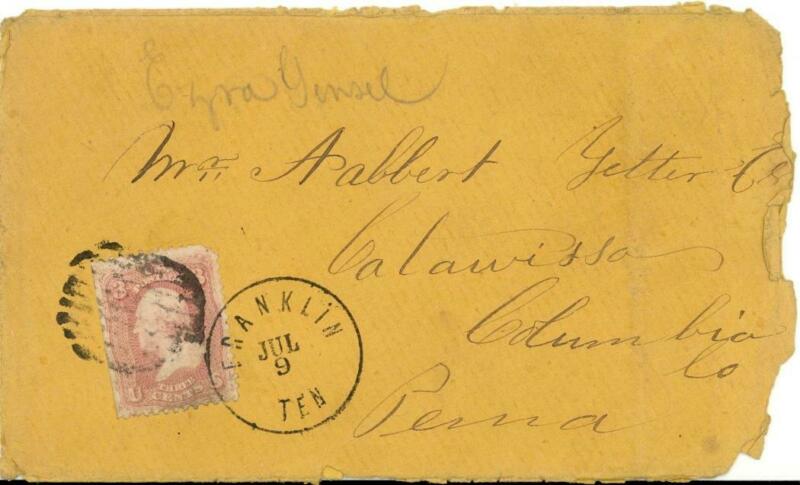 Ezra Gensel
Mr. Aabbert Yetter Es
Catawissa
Columbia
Co
Penna
FRANKLIN
JUL
9
TEN
3
U S
THREE
CENTS